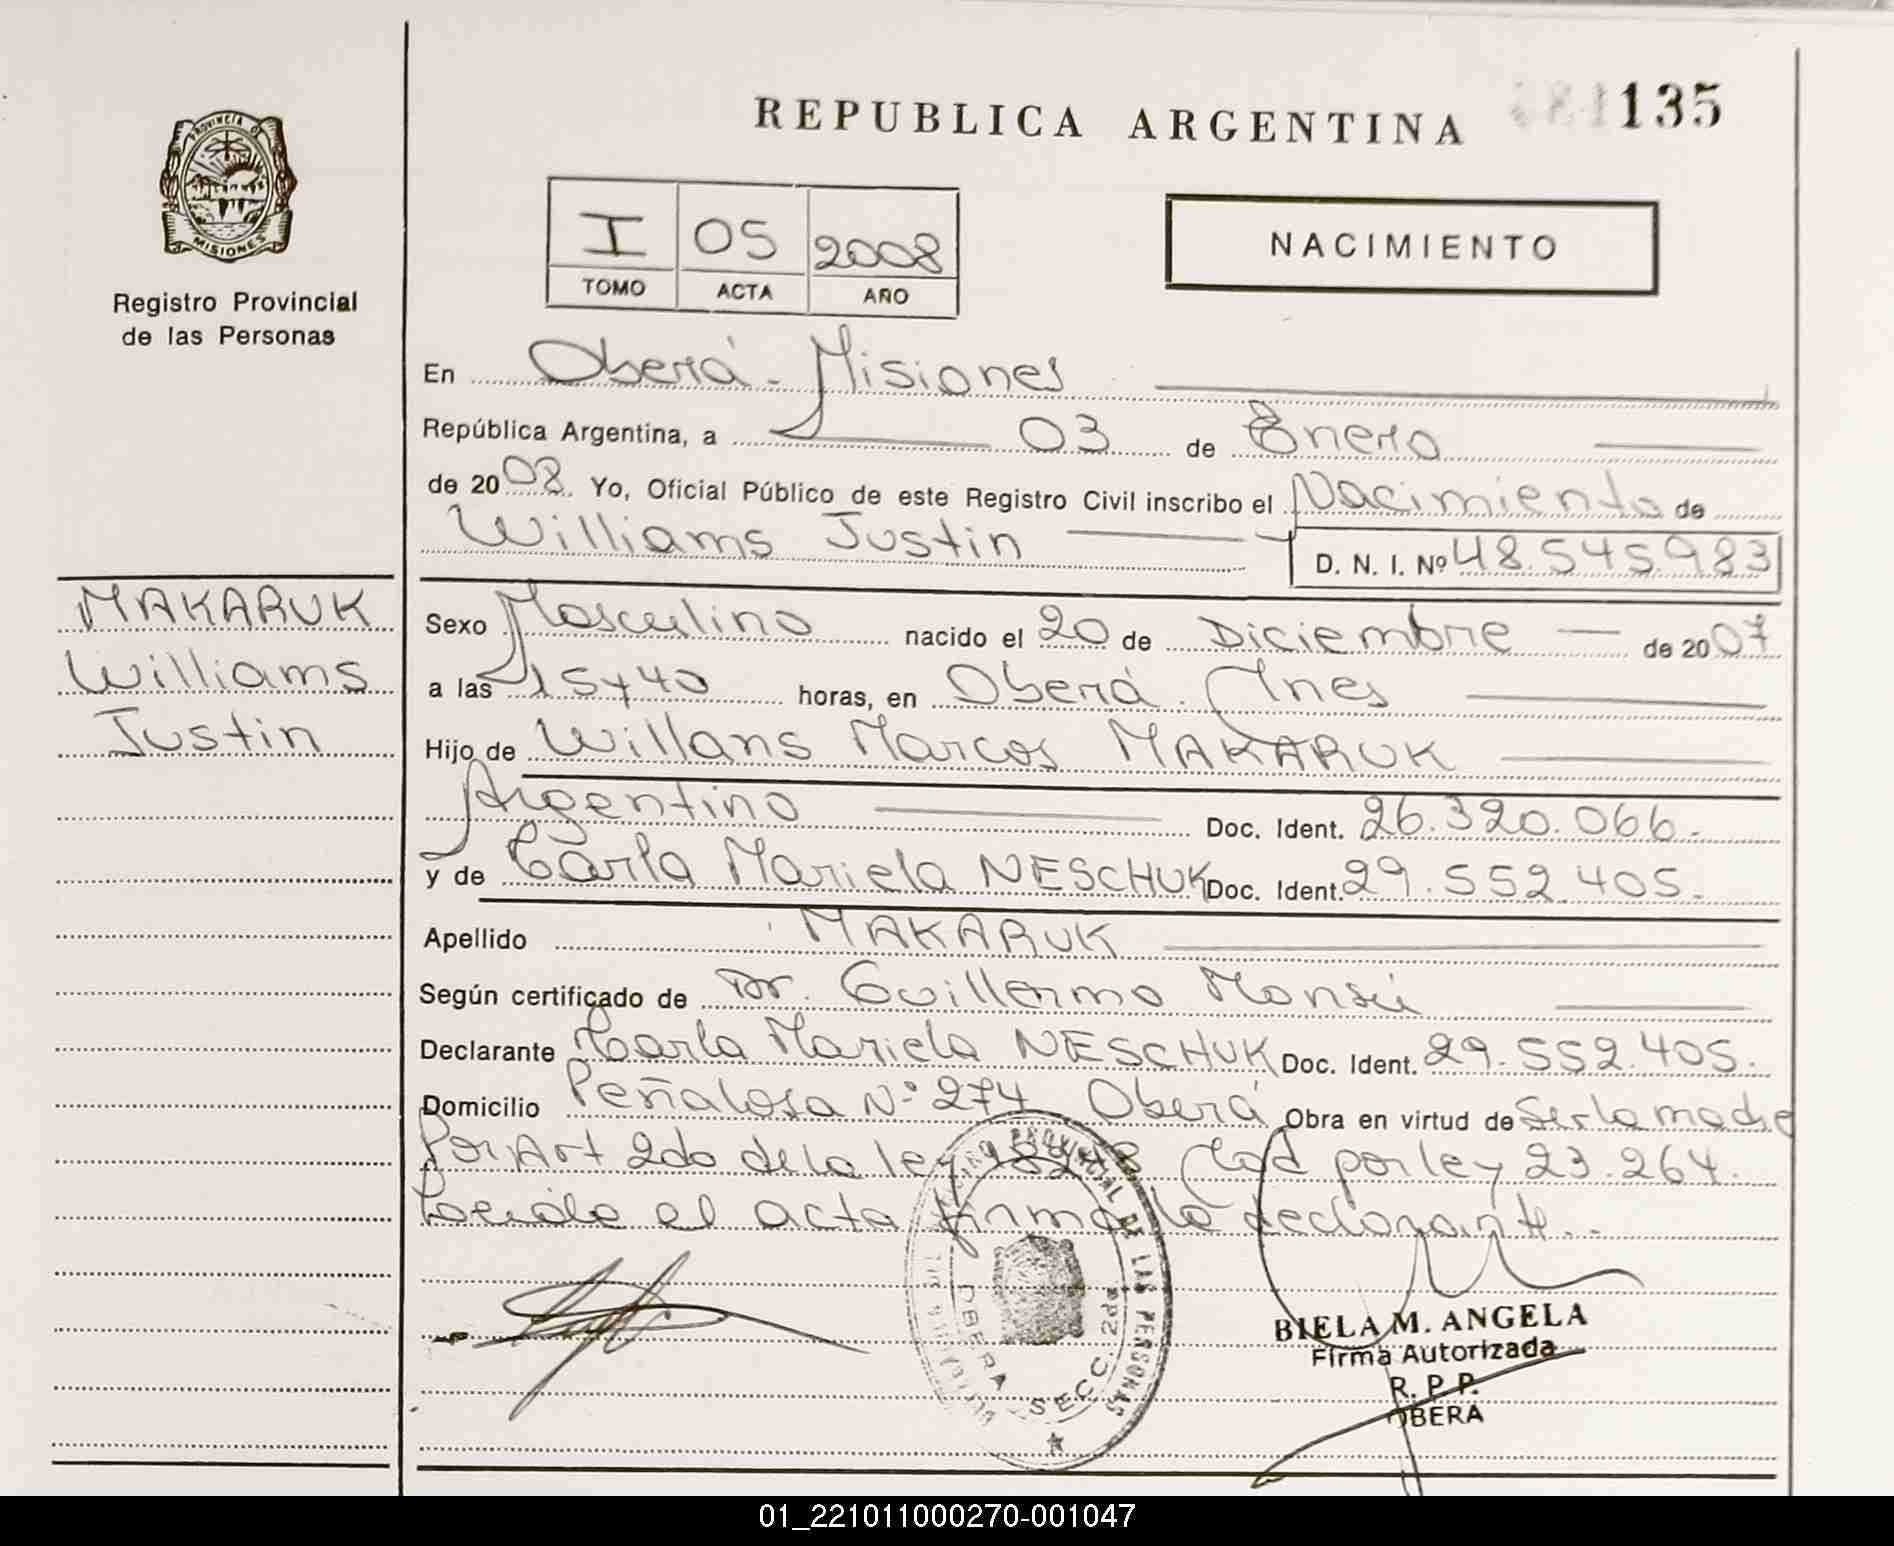 REPUBLICA ARGENTINA
135
PROVINCIA D
MISIONES
Registro Provincial
de las Personas
I 05 2008
TOMO ACTA AÑO
NACIMIENTO
En Oberá - Misiones
República Argentina, a 03 de Enero
de 2008. Yo, Oficial Público de este Registro Civil inscribo el Nacimiento de
Williams Justin D. N. I. Nº 48.545.983
MAKARUK
Williams
Justin
Sexo Masculino nacido el 20 de Diciembre de 2007
a las 15y40 horas, en Oberá. Mnes
Hijo de Willans Marcos MAKARUK
Argentino Doc. Ident. 26.320.066.
y de Carla Mariela NESCHUK Doc. Ident. 29.552.405.
Apellido MAKARUK
Según certificado de Dr. Guillermo
Declarante Carla Mariela NESCHUK Doc. Ident. 29.552.405.
Domicilio Peñalosa Nº 274 Oberá Obra en virtud de Ser la madre
Por Art 2do de la ley 18248 Mod por ley 23.264.
Leída el acta firma la declarante.
REGISTRO PROVINCIAL DE LAS PERSONAS
OBERA SECC. 2da
BIELA M. ANGELA
Firma Autorizada
R. P. P.
OBERA
01_221011000270-001047